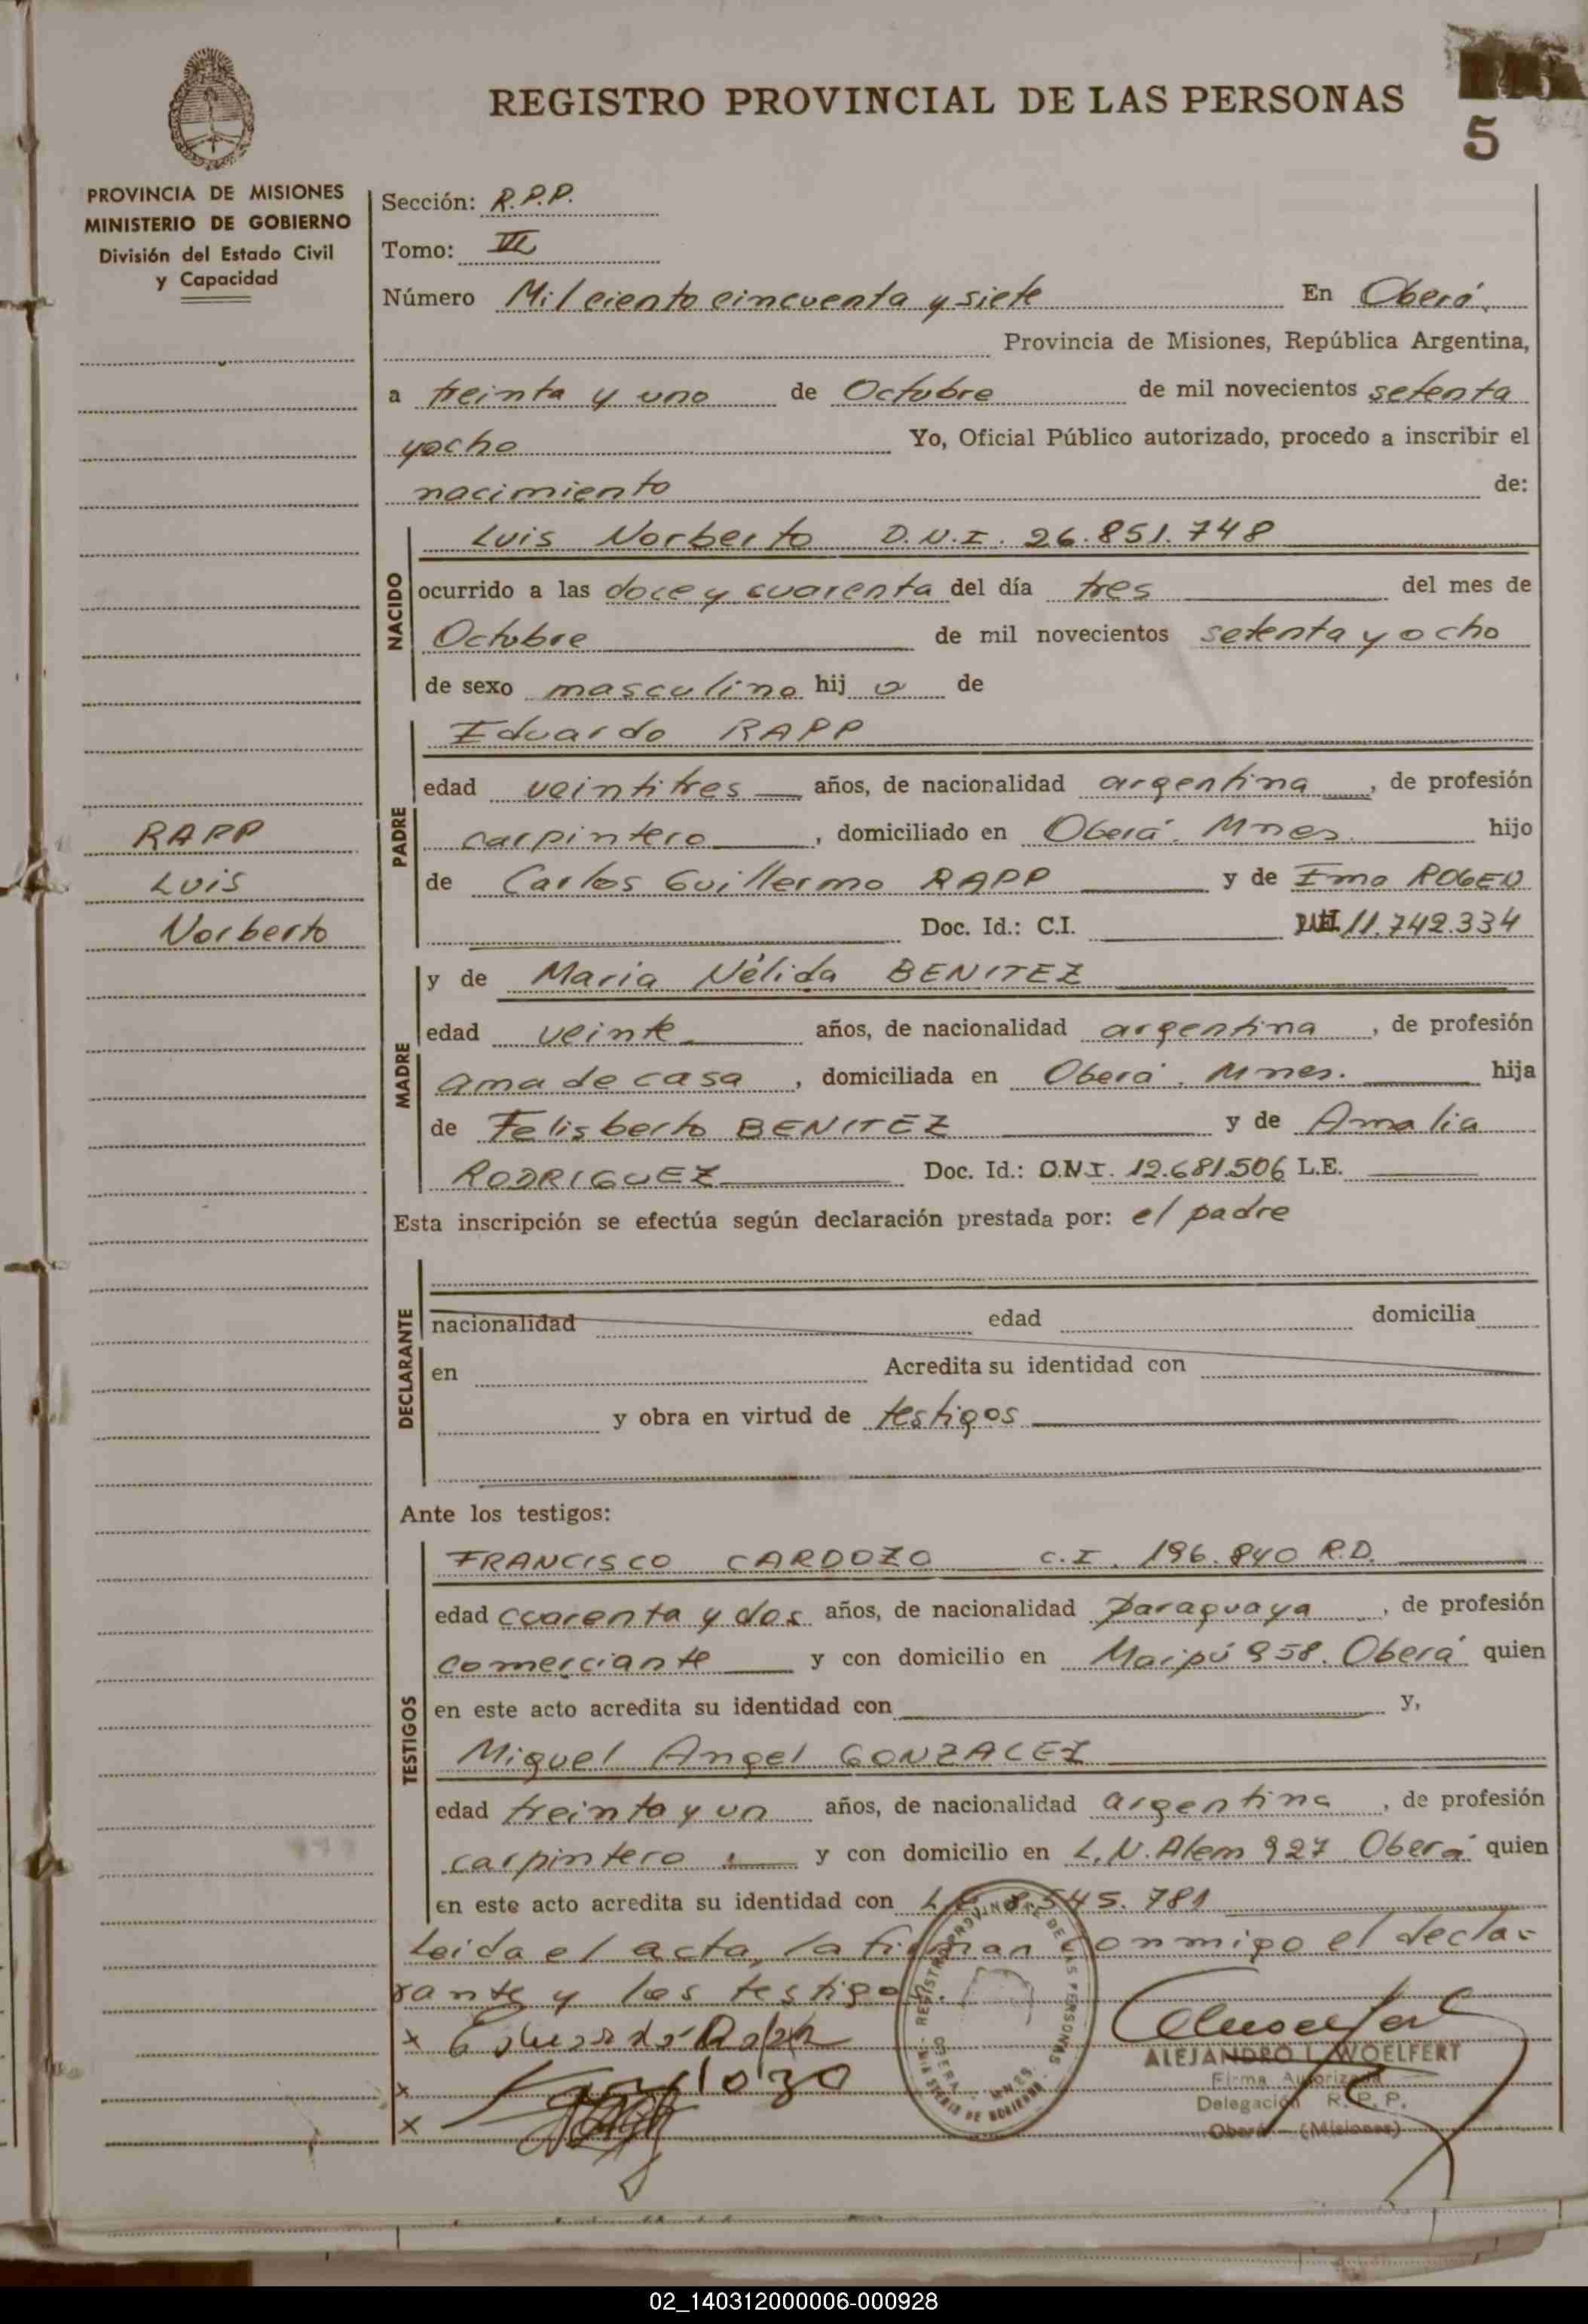 REGISTRO PROVINCIAL DE LAS PERSONAS
5
PROVINCIA DE MISIONES
MINISTERIO DE GOBIERNO
División del Estado Civil
y Capacidad
Sección: R.P.P.
Tomo:
Número Mil ciento cincuenta y siete En Oberá,
Provincia de Misiones, República Argentina,
a treinta y uno de Octubre de mil novecientos setenta
yocho Yo, Oficial Público autorizado, procedo a inscribir el
nacimiento de:
NACIDO
Luis Norberto D.N.I. 26.851.748
ocurrido a las doce y cuarenta del día tres del mes de
Octubre de mil novecientos setenta y ocho
de sexo masculino hij o de
PADRE
Eduardo RAPP
edad veintitres años, de nacionalidad argentina, de profesión
carpintero, domiciliado en Oberá. Mnes. hijo
de Carlos Guillermo RAPP y de Ema
Doc. Id.: C.I. 11.742.334
RAPP
Luis
Norberto
MADRE
y de Maria Nélida BENITEZ
edad veinte años, de nacionalidad argentina, de profesión
ama de casa, domiciliada en Oberá. Mnes. hija
de Felisberto BENITEZ y de Amalia
RODRIGUEZ Doc. Id.: D.N.I. 12.681.506 L.E.
Esta inscripción se efectúa según declaración prestada por: el padre
DECLARANTE
nacionalidad edad domicilia
en Acredita su identidad con
y obra en virtud de testigos
Ante los testigos:
TESTIGOS
FRANCISCO CARDOZO C.I. 196.840 R.D.
edad cuarenta y dos años, de nacionalidad paraguaya, de profesión
comerciante y con domicilio en Maipú 958. Oberá quien
en este acto acredita su identidad con y,
Miguel Angel GONZALEZ
edad treinta y un años, de nacionalidad argentina, de profesión
carpintero y con domicilio en L.N. Alem 927 Oberá quien
en este acto acredita su identidad con 8.545.781
Leida el acta, la firman conmigo el decla-
rante y los testigos.
x Eduardo Rapp
x Cardozo
x
ALEJANDRO L. WOELFERT
Firma Autorizada
Delegación R.P.P.
Oberá - (Misiones)
02_140312000006-000928